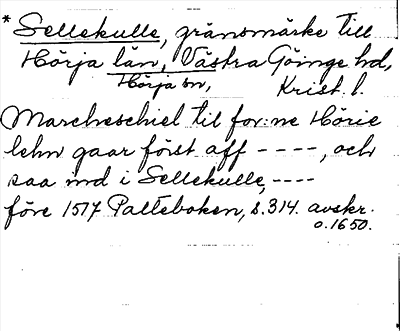 * Sellekulle, gränsmärke till
Hörja län, Västra Göinge hd,
Hörja sn, Krist. l.
Marcheschiel til for:ne Hörie
lehn gaar först aff - - - -, och
saa ind i Sellekulle, - - - -
före 1517 Palteboken, s. 314. avskr.
o. 1650.